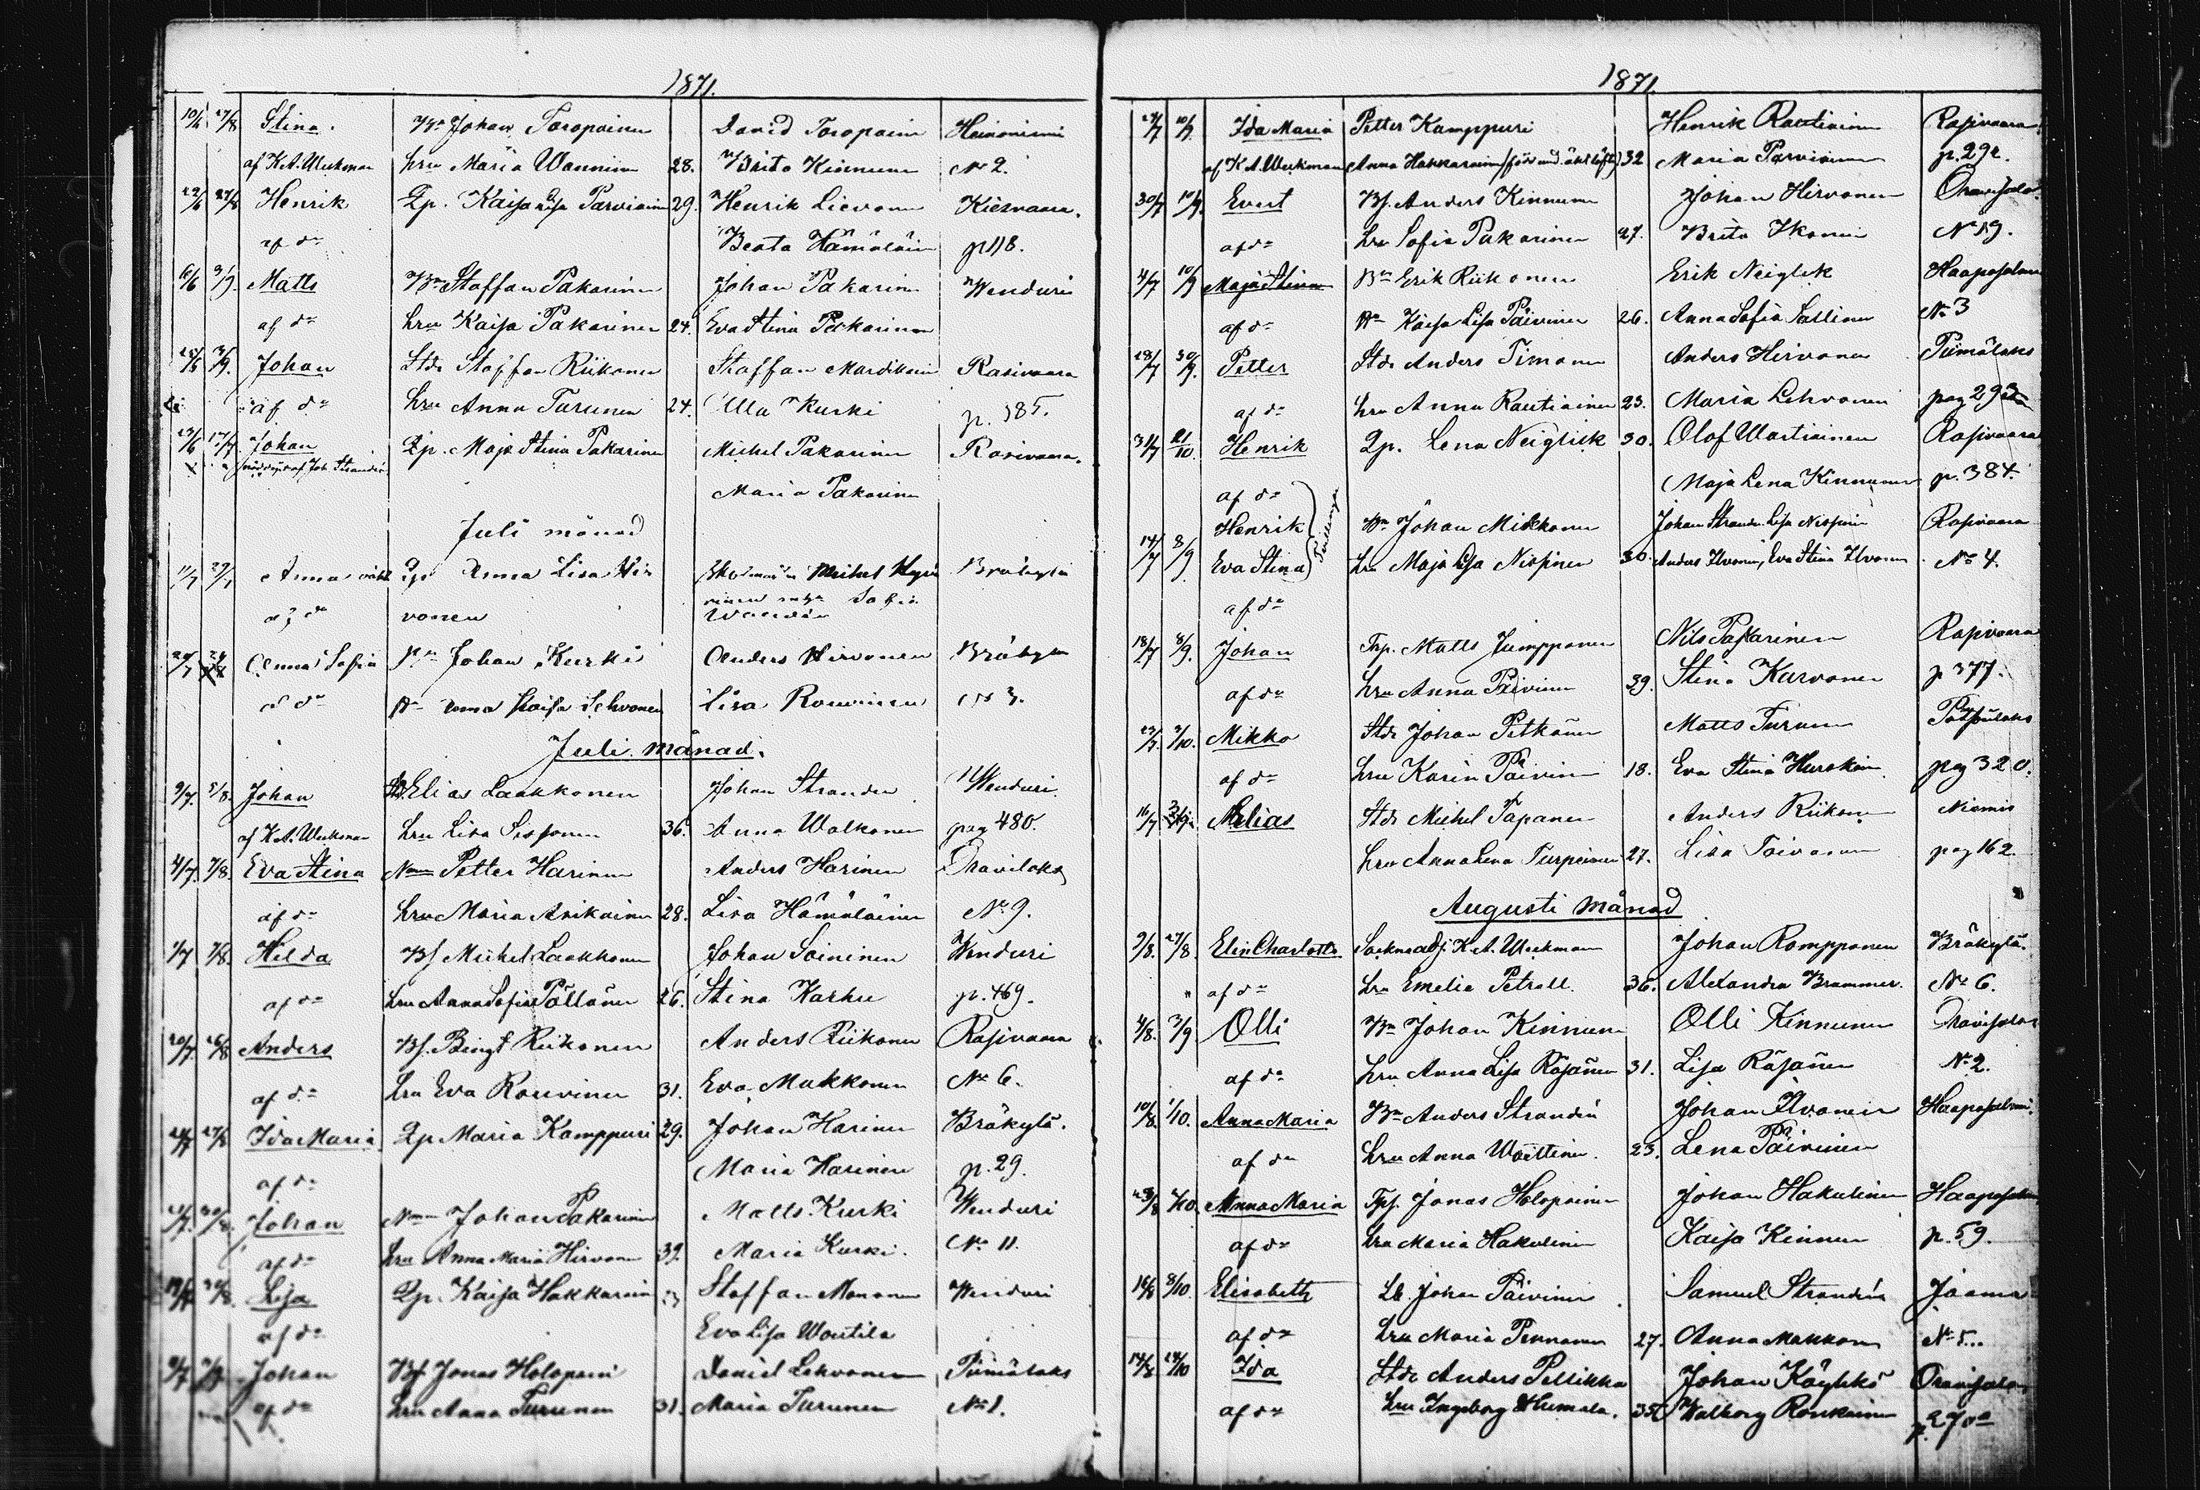 1871.
10/6 27/8 Stina. Bn Johan Toropainen David Toropain Heinoniemi
af K.A. Weckman hru Maria Wänninen 28. Brita Kinnunen No 2.
22/6 27/8 Henrik Qp. Kaisa Lisa Parviainen 29. Henrik Lievonen Kiesvaara.
af do Beata Hämäläin p 118.
6/6 3/9. Matts Bn Staffan Pakarinen Johan Pakarinen Wenduri
af do hru Kaisa Pakarinen 24. Eva Stina Pakarinen
25/6 3/9. Johan Stdr Staffan Riikonen Staffan Mardikain Rasivaara
af do hru Anna Turunen 24. Ulla Kurki p. 385.
23/6 17/7 Johan Qp. Maja Stina Pakarinen Michel Pakarinen Rasivaara.
nöddöpt af Joh Strandén Maria Pakarinen
Juli månad
11/7 Anna Qp Anna Lisa Hir Michel Hyvö Bräkylä
af do vonen rinen Sofia
Anna Sofia Bn Johan Kurki Anders Hirvonen Bräkylä
af do Anna Kaisa Lehvonen Lisa Rouvinen No 3.
Juli månad.
9/7. 5/8. Johan Elias Laakkonen Johan Stranden Wenduri.
af K.A. Weckman hru Lisa Sissonen 36. Anna Walkonen pag 480.
4/7. 7/8. Eva Stina Nm Petter Harinen Anders Harinen Oravilaks
af do hru Maria Asikainen 28. Lisa Hämäläinen No 9.
1/7 7/8. Hilda Bf Michel Laakkonen Johan Soininen Wenduri
af do hru Anna Sofia Pöllänen 26. Stina Karhu p. 469.
20/7 26/8 Anders Bf. Bengt Riikonen Anders Riikonen Rasivaara
af do hru Eva Rouvinen 31. Eva Mukkonen No 6.
27/8 Ida Maria Qp Maria Kamppuri 29. Johan Harinen Bräkylä.
af do Maria Harinen p. 29.
Johan Nm Johan Pakarinen Matts Kurki Wenduri
af do hru Anna Maria Hirvonen 39. Maria Kurki. No 11.
Lisa Qp. Kaisa Hakkarain Staffan Mononen Wenduri
af do Eva Lisa Woutila
Johan Bf Jonas Holopain Daniel Lehvonen Piimälaks
af do hru Anna Turunen 31. Maria Turunen No 1.
1871.
27/7 10/9 Ida Maria Petter Kamppuri Henrik Rautiainen Rasivaara.
af K A. Weckman Anna Hakkarainen 32 Maria Parviainen p. 292.
30/7 10/9. Evert Bf. Anders Kinnunen Johan Hirvonen Oravisalo
af do hru Sofia Pakarinen 27. Brita Ikonen No 19.
4/7 10/9 Maja Stina Bn Erik Riikonen Erik Neiglik Haapasalmi
af do Kaisa Lisa Päivinen 26. Anna Sofia Sallinen No 3
28/7 30/9. Petter Stdr Anders Timonen Anders Hirvonen Piimälaks
af do hru Anna Rautiainen 23. Maria Lehvonen pag 293
31/7 21/10. Henrik Qp. Lena Neiglick 30. Olof Wartiainen Rasivaara
af do Maja Lena Kinnunen p. 384.
Henrik Bn Johan Mickkonen Johan Strandn Lisa Nissinen Rasivaara
14/7 8/9 Eva Stina Tvillingar hru Maja Lisa Nissinen 30. Anders Ilvonen, Eva Stina Ilvonen No 4.
af do
18/7 8/9. Johan Trp. Matts Jumpponen Nils Pakarinen Rasivaara
af do hru Anna Päivinen 39. Stina Karvonen p 377.
23/7. 7/10. Mikko Stdr Johan Pitkänen Matts Turunen Potsulaks
af do hru Karin Päivinen 18. Eva Stina Hurskain pag 320.
16/7 Elias Stdr Michel Tapanen Anders Riikonen Niemis
hru Anna Lena Turpeinen 27. Lisa Toivanen pag 162.
Augusti månad
9/8. 27/8 Elin Charlotta Socknadj. K.A. Weckman Johan Rompponen Bräkylä.
af do hru Emelie Petrell. 36. Alexandra Brammer. No 6.
4/8. 3/9 Olli Bn Johan Kinnunen Olli Kinnunen Oravisalo
af do hru Anna Lisa Räsänen 31. Lisa Räsänen No 2.
10/8. 1/10. Anna Maria Bn Anders Strandén Johan Ilvonen Haapasalmi.
af do hru Anna Woittinen. 23. Lena Päivinen
23/8 7/10. Anna Maria Trp. Jonas Holopainen Johan Hakulinen Haapasalmi
af do hru Maria Hakulinen Kaisa Kinnunen p. 59.
16/8 8/10. Elisabeth Lb. Johan Päivinen Samuel Strandén Jaama
af do hru Maria Pennanen 27. Anna Makkonen No 5...
14/8 28/10 Ida Stdr Anders Pellikka Johan Käyhkö Oravisalo
af do hru Ingeborg Humala. 35 Walborg Ronkainen p. 270